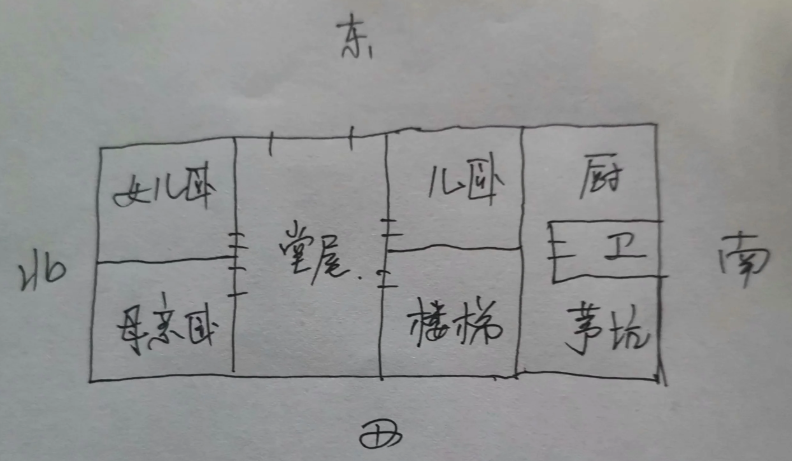 东
女儿卧
儿卧
厨
北
堂屋
卫
南
母亲卧
楼梯
茅坑
西